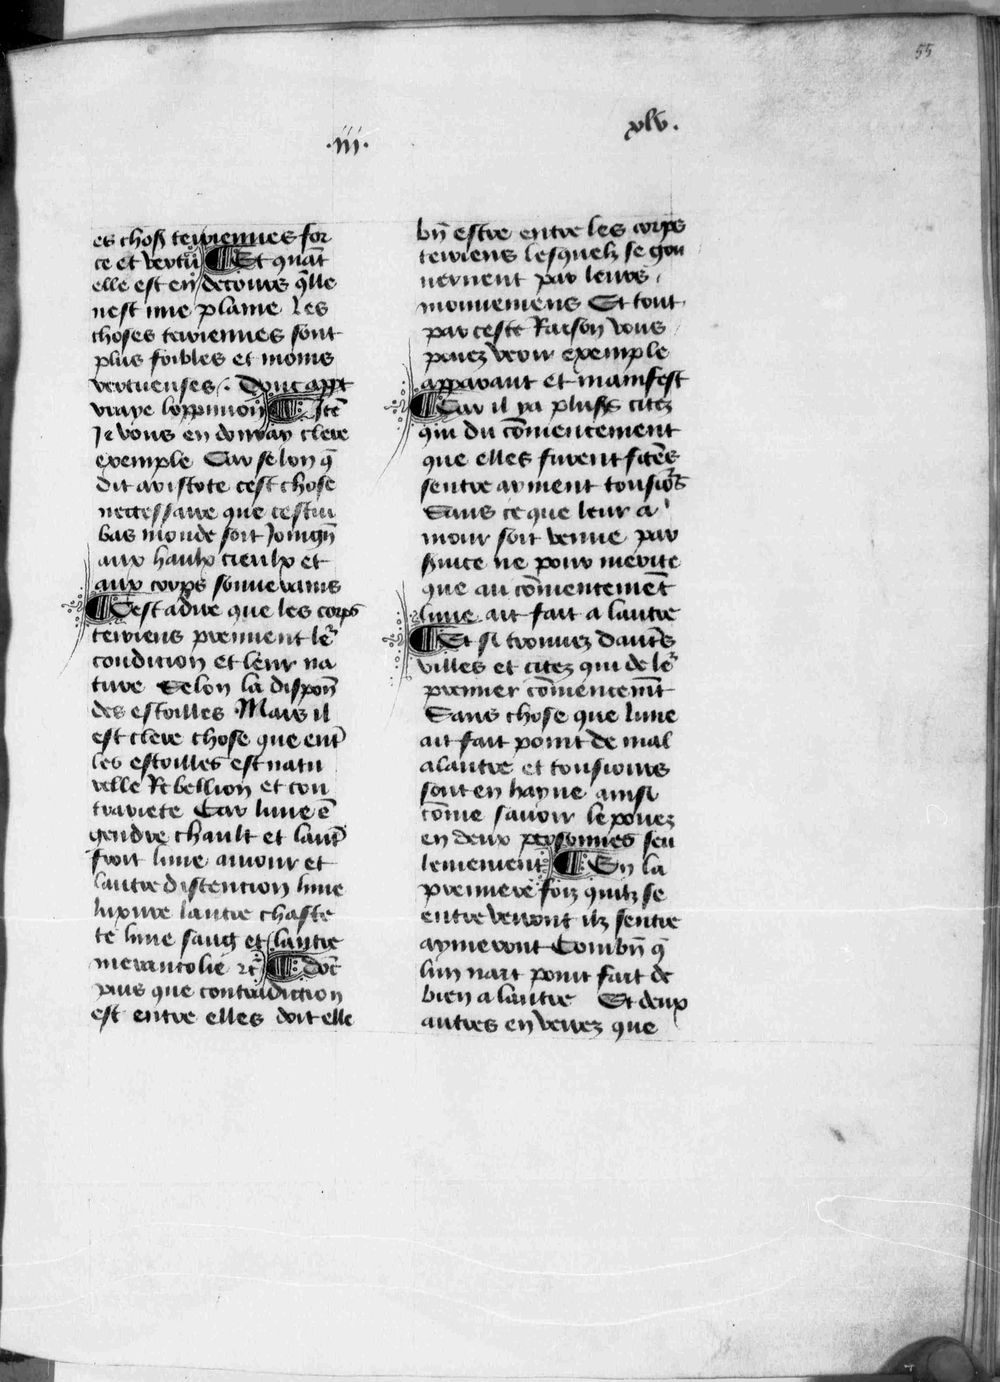 55
.iii.
xlv.
es chos̃ terriennes for
ce et vertu ¶ Et quãt
elle est en decours q̃lle
nest mie plaine Les
choses terriennes sont
plus foibles et moins
vertueuses . Donc appt
vraye loppinion ¶ Itẽ
Je vous en donray clere
exemple Car selon q̃
dit aristote cest chose
neccessaire que cestui
bas monde soit Joingñ
aux haulx cieulx et
aux corps souuerains
¶ Cest adire que les corps
terriens prennent ler̃
condicion et leur na
ture Selon la disposñ
des estoilles Mais il
est clere chose que ent̃
les estoilles est natu
relle Rebellion et con
trariete Car lune ẽ
gendre chault et laut̃
froit lune amour et
lautre distencion lune
luxure lautre chaste
te lune sang et lautre
merancolie ⁊c̃ ¶ Doc̃
puis que contradiction
est entre elles doit elle
bñ estre entre les corps
terriens lesquelz se gou
uernent par leurs
mouuemens Et tout
par ceste Raison vous
pouez veoir exemple
apparant et manifest
¶ Car il ya pluss̃ citez
qui du cõmencement
que elles furent fctẽs
sentre ayment tousio̾s
Sans ce que leur a
mour soit venue par
seruice ne pour merite
que au cõmencemẽt
lune ait fait a lautre
¶ Et si trouuez dautr̃s
villes et citez qui de ler̃
premier cõmencem̃t
Sans chose que lune
ait fait point de mal
alautre et tousiours
sont en hayne ainsi
cõme sauoir le pouez
en deux personnes seu
lement ¶ En la
premiere foiz quilz se
entre verront ilz sentre
aymeront Combñ q̃
lun nait point fait de
bien a lautre Et deux
autres en verrez que